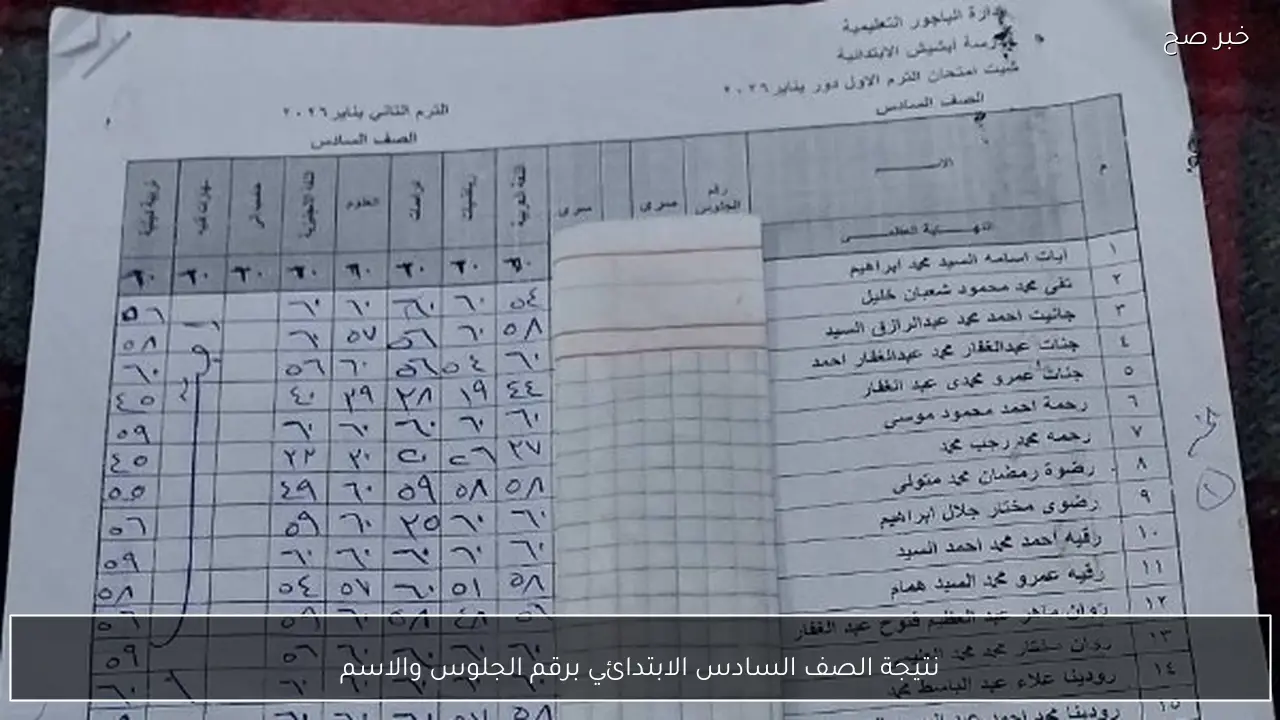 خبر صح
إدارة الباجور التعليمية
مدرسة ابشيش الابتدائية
شيت امتحان الترم الاول دور يناير ٢٠٢٦
الصف السادس
الترم الثاني يناير ٢٠٢٦
الصف السادس
م الاســـــم رقم الجلوس سرى سرى اللغة العربية رياضيات دراسات العلوم اللغة الانجليزية تربية دينية
النهــاية العظمــى
١ ايات اسامه السيد محمد ابراهيم ٥٤ ٦٠ ٦٠ ٦٠ ٦٠ ٥٦
٢ تقى محمد محمود شعبان خليل ٥٨ ٦٠ ٥٦ ٥٧ ٦٠ ٥٨
٣ جانيت احمد محمد عبدالرازق السيد ٦٠ ٥٤ ٥٦ ٦٠ ٥٦ ٦٠
٤ جنات عبدالغفار محمد عبدالغفار احمد ٤٤ ١٩ ٢٨ ٣٩ ٤٠ ٤٥
٥ جنات عمرو محمدى عبد الغفار ٦٠ ٦٠ ٦٠ ٦٠ ٦٠ ٥٩
٦ رحمة احمد محمود موسى ٢٧ ٢٦ ٢٠ ٣٠ ٢٢ ٤٥
٧ رحمه محمد رجب محمد ٥٨ ٥٨ ٥٩ ٦٠ ٤٩ ٥٥
٨ رضوة رمضان محمد متولى ٦٠ ٦٠ ٢٥ ٦٠ ٥٩ ٥٦
٩ رضوى مختار جلال ابراهيم ٦٠ ٦٠ ٦٠ ٦٠ ٦٠ ٥٩
١٠ رقيه احمد محمد احمد السيد ٥٨ ٥١ ٦٠ ٥٧ ٥٤ ٥٨
١١ رقيه عمرو محمد السيد همام ٥٦ ٤٨ ٥٨ ٦٠ ٥٨ ٥٦
١٢ روان ماهر عبد العظيم فتوح عبد الغفار ٥٩
١٣ روان محمد محمد ٦٠
١٤ رودينا علاء عبد الباسط محمد
١٥ رودينا محمد احمد عبد
نتيجة الصف السادس الابتدائي برقم الجلوس والاسم